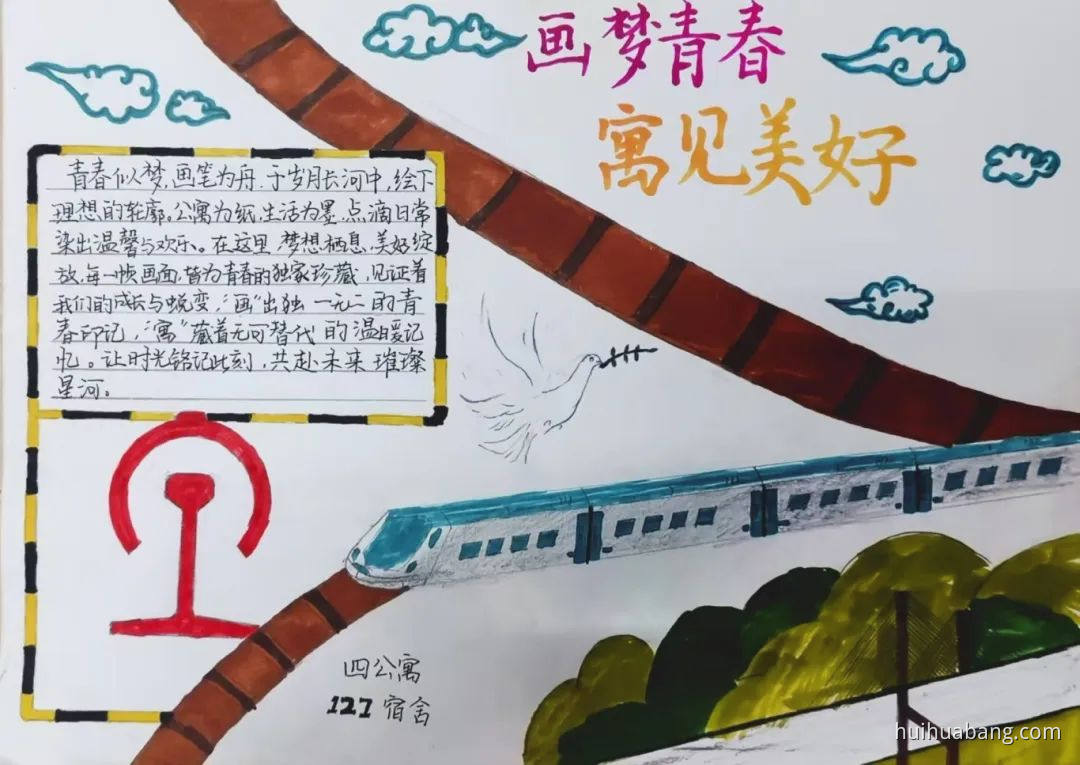 画梦青春
寓见美好
青春似梦,画笔为舟,于岁月长河中,绘下
理想的轮廓。公寓为纸,生活为墨,点滴日常
染出温馨与欢乐。在这里,梦想栖息,美好绽
放,每一帧画面,皆为青春的独家珍藏,见证着
我们的成长与蜕变,“画”出独一无二的青
春印记,“寓”藏着无可替代的温暖记
忆。让时光铭记此刻,共赴未来璀璨
星河。
四公寓
127宿舍
huihuabang.com